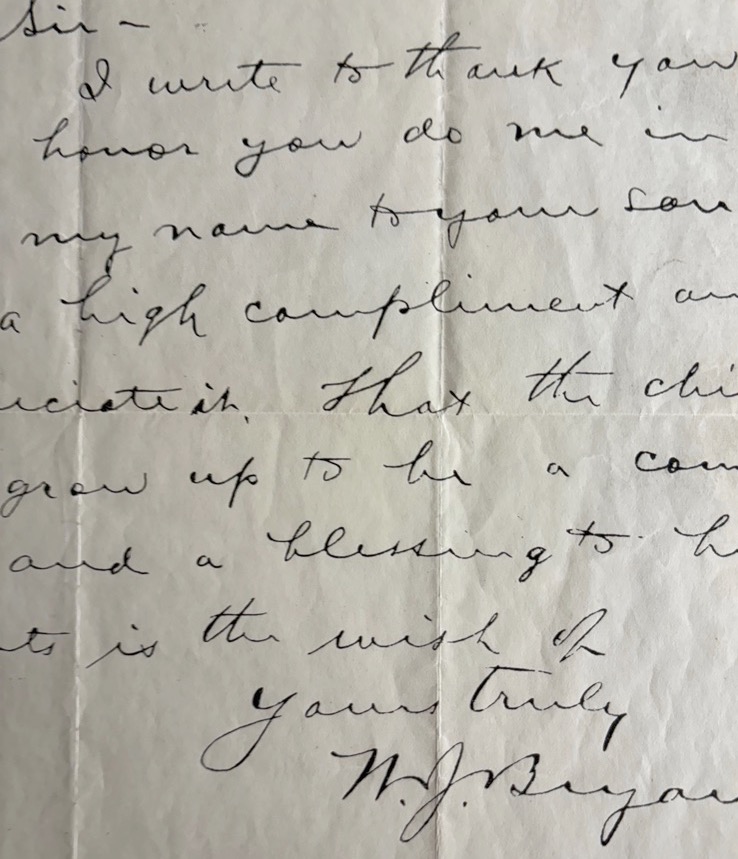 Sir -
I write to thank you
honor you do me in
my name to your son
a high compliment an
eciate it. That the chi
grow up to be a com
and a blessing to h
ts is the wish of
Yours truly
W. J. Bryan